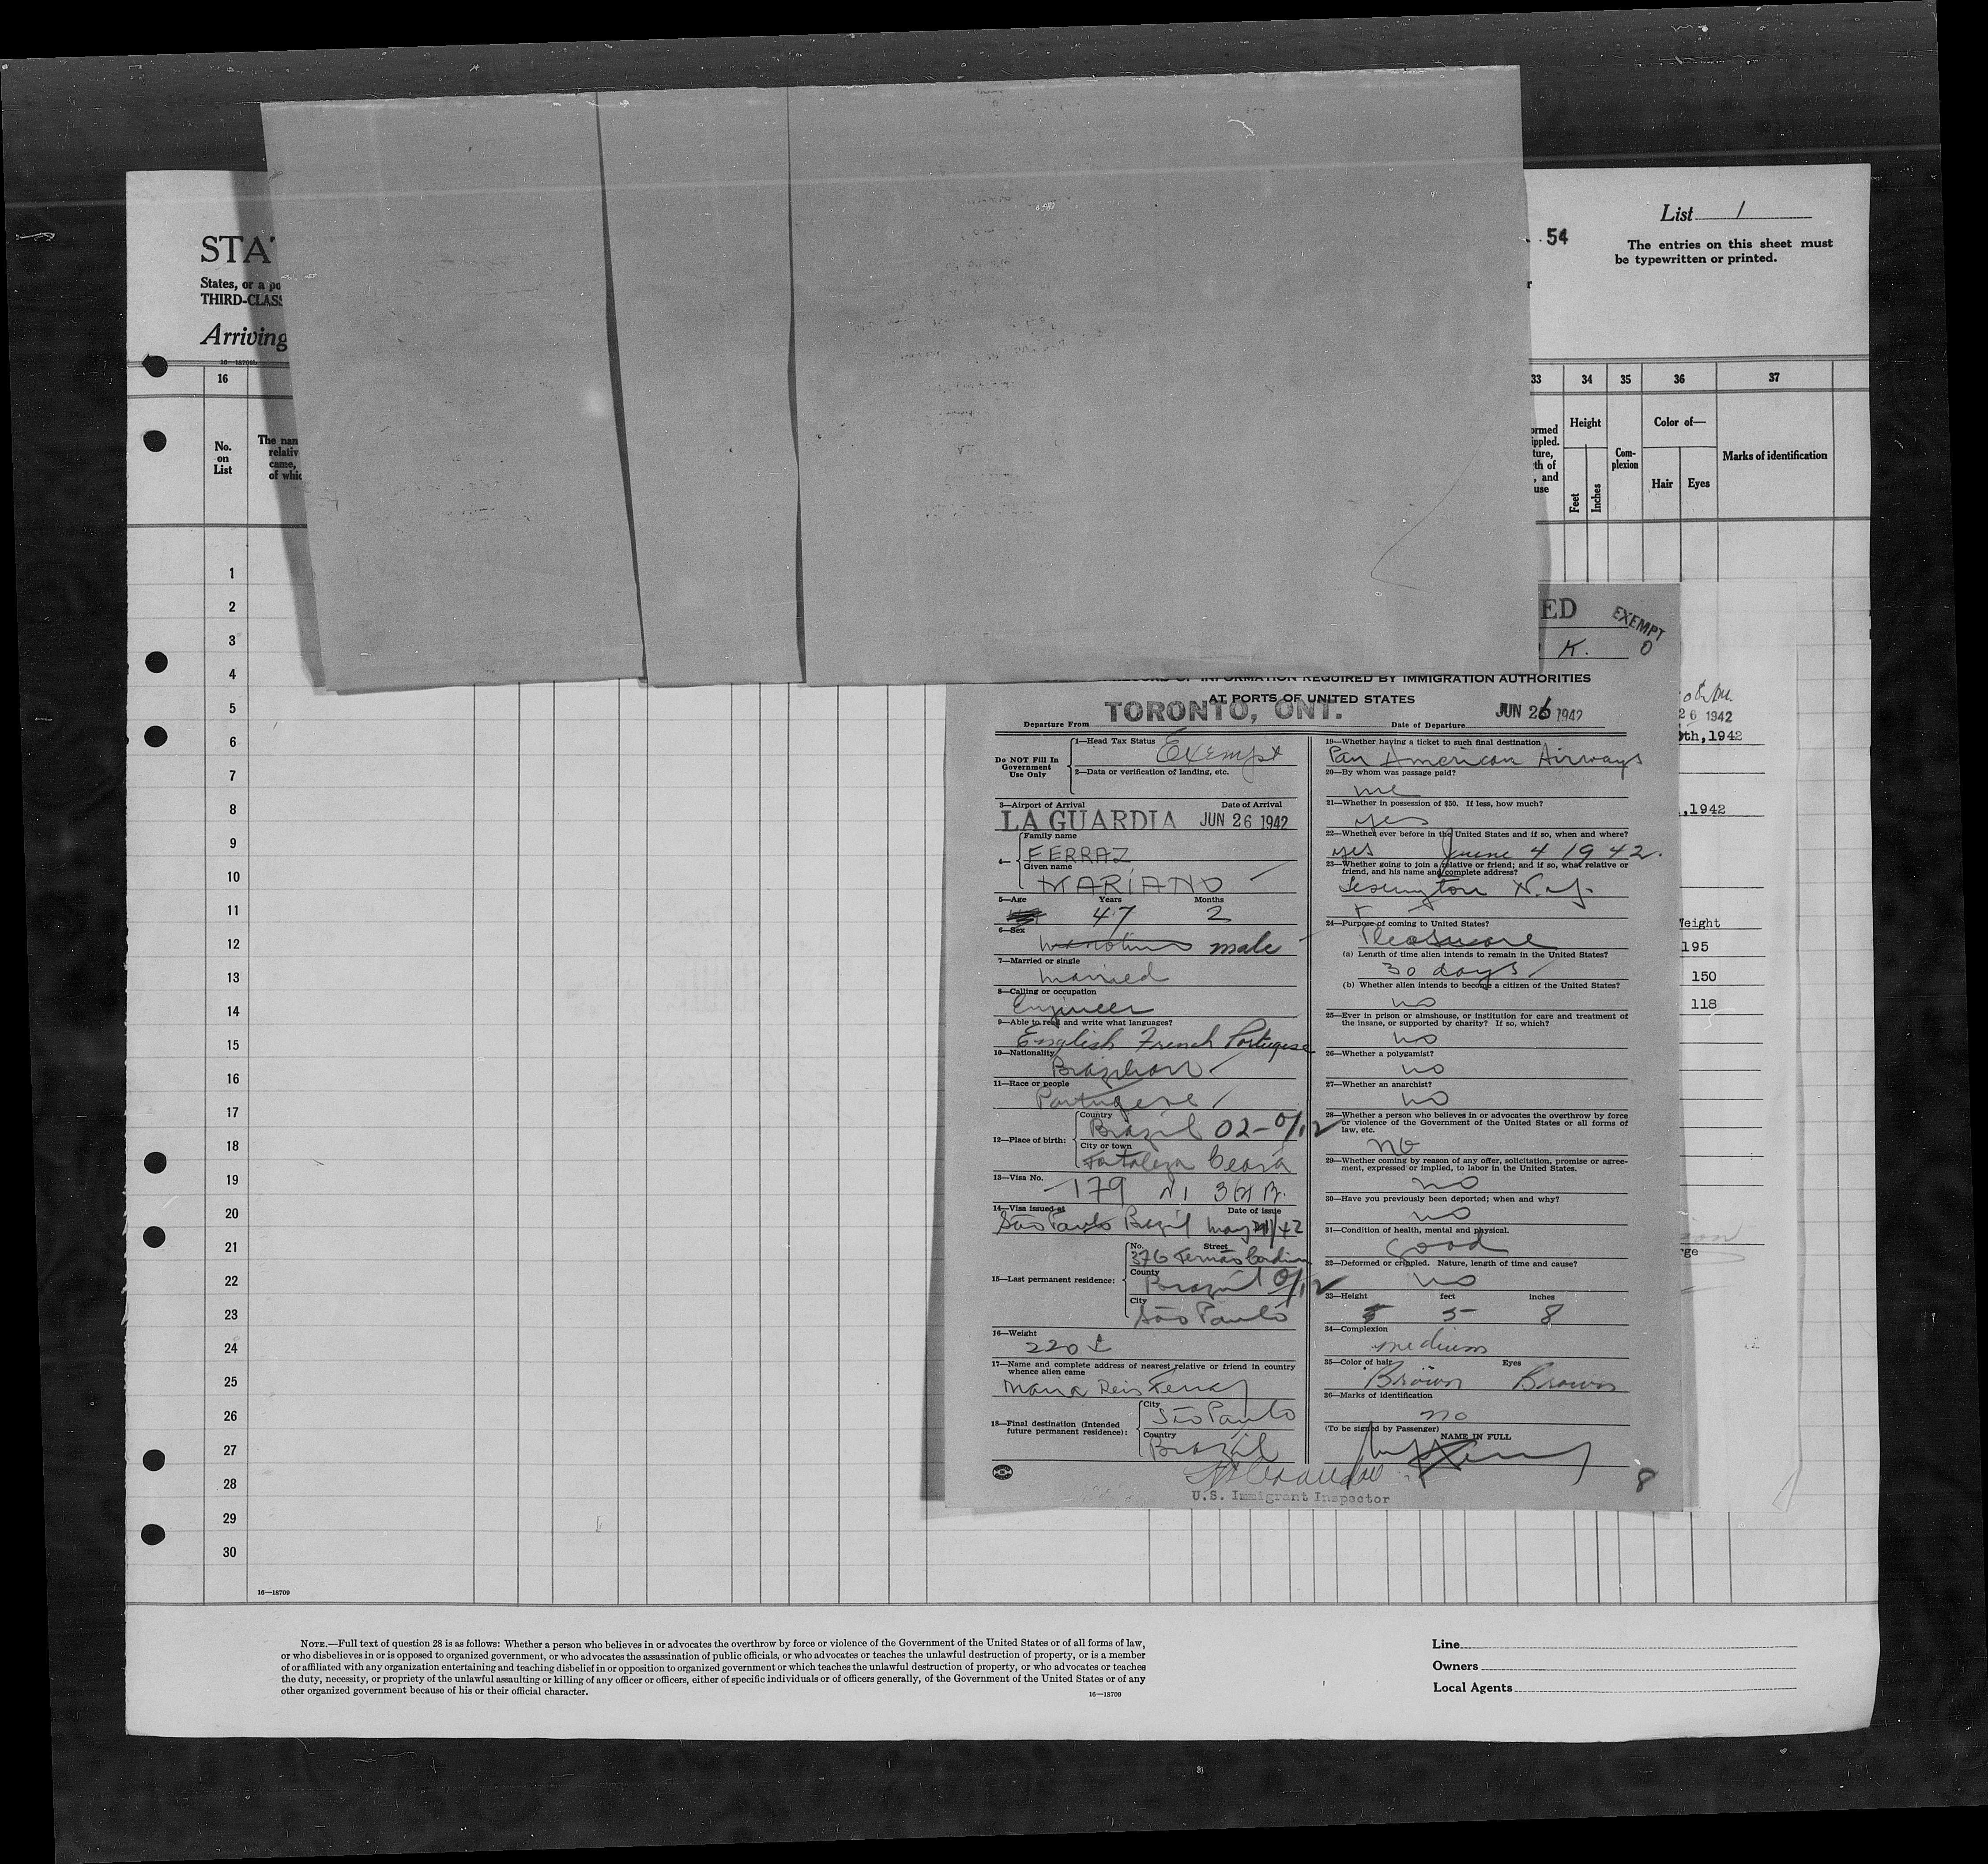 List 1
54
The entries on this sheet must
be typewritten or printed.
STA
States, or a po
THIRD-CLASS
Arriving
16—18709b
16
33 34 35 36 37
No.
on
List
The nan
relativ
came,
of whic
ormed
ippled.
ture,
th of
, and
use
Height
Feet
Inches
Com-
plexion
Color of—
Hair
Eyes
Marks of identification
1
2
3
4
5
6
7
8
9
10
11
12
13
14
15
16
17
18
19
20
21
22
23
24
25
26
27
28
29
30
16—18709
ED
EXEMPT
K.
0
INFORMATION REQUIRED BY IMMIGRATION AUTHORITIES
AT PORTS OF UNITED STATES
Departure From TORONTO, ONT. Date of Departure JUN 26 1942
Do NOT Fill In
Government
Use Only
1—Head Tax Status Exempt
2—Data or verification of landing, etc.
3—Airport of Arrival Date of Arrival
LA GUARDIA JUN 26 1942
4—
Family name
FERRAZ
Given name
MARIANO
5—Age Years Months
47 2
6—Sex
male
7—Married or single
Married
8—Calling or occupation
Engineer
9—Able to read and write what languages?
English French Portugese
10—Nationality
Brazilian
11—Race or people
Portugese
12—Place of birth:
Country
Brazil 02-0/12
City or town
Fortaleza Ceará
13—Visa No.
179
14—Visa issued at Date of issue
São Paulo Brazil May /42
15—Last permanent residence:
No. Street
376 Fernão Cardim
County
Brazil 0/12
City
São Paulo
16—Weight
220
17—Name and complete address of nearest relative or friend in country
whence alien came
Maria Reis Ferraz
18—Final destination (Intended
future permanent residence):
City
São Paulo
Country
Brazil
U.S. Immigrant Inspector
19—Whether having a ticket to such final destination
Pan American Airways
20—By whom was passage paid?
me
21—Whether in possession of $50. If less, how much?
yes
22—Whether ever before in the United States and if so, when and where?
yes June 4 1942.
23—Whether going to join a relative or friend; and if so, what relative or
friend, and his name and complete address?
Lexington N.Y.
24—Purpose of coming to United States?
Pleasure
(a) Length of time alien intends to remain in the United States?
30 days
(b) Whether alien intends to become a citizen of the United States?
no
25—Ever in prison or almshouse, or institution for care and treatment of
the insane, or supported by charity? If so, which?
no
26—Whether a polygamist?
no
27—Whether an anarchist?
no
28—Whether a person who believes in or advocates the overthrow by force
or violence of the Government of the United States or all forms of
law, etc.
no
29—Whether coming by reason of any offer, solicitation, promise or agree-
ment, expressed or implied, to labor in the United States.
no
30—Have you previously been deported; when and why?
no
31—Condition of health, mental and physical.
Good
32—Deformed or crippled. Nature, length of time and cause?
no
33—Height feet inches
5 8
34—Complexion
medium
35—Color of hair Eyes
Brown Brown
36—Marks of identification
no
(To be signed by Passenger)
NAME IN FULL
8
26 1942
th,1942
,1942
Weight
195
150
118
rge
NOTE.—Full text of question 28 is as follows: Whether a person who believes in or advocates the overthrow by force or violence of the Government of the United States or of all forms of law,
or who disbelieves in or is opposed to organized government, or who advocates the assassination of public officials, or who advocates or teaches the unlawful destruction of property, or is a member
of or affiliated with any organization entertaining and teaching disbelief in or opposition to organized government or which teaches the unlawful destruction of property, or who advocates or teaches
the duty, necessity, or propriety of the unlawful assaulting or killing of any officer or officers, either of specific individuals or of officers generally, of the Government of the United States or of any
other organized government because of his or their official character.
16—18709
Line
Owners
Local Agents